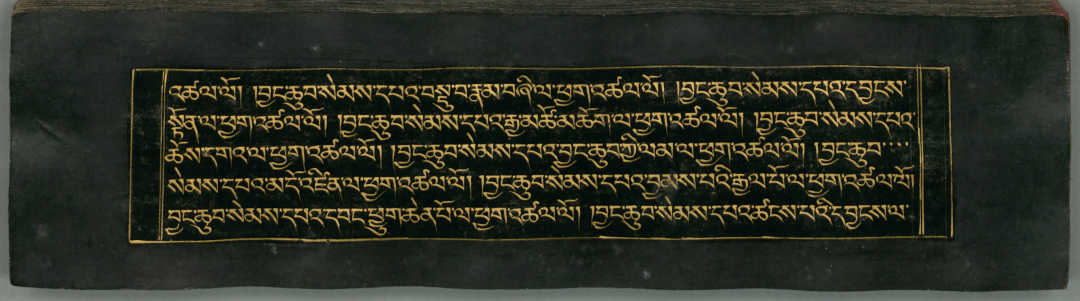 འཚལ་ལོ། །བྱང་ཆུབ་སེམས་དཔའ་བསྡུ་བ་རྣམ་བཞི་ལ་ཕྱག་འཚལ་ལོ། །བྱང་ཆུབ་སེམས་དཔའ་དབྱངས་
སྟོན་ལ་ཕྱག་འཚལ་ལོ། །བྱང་ཆུབ་སེམས་དཔའ་རྒྱ་མཚོ་མཆོག་ལ་ཕྱག་འཚལ་ལོ། །བྱང་ཆུབ་སེམས་དཔའ་
ཆོས་དགའ་ལ་ཕྱག་འཚལ་ལོ། །བྱང་ཆུབ་སེམས་དཔའ་བྱང་ཆུབ་ཀྱི་ལམ་ལ་ཕྱག་འཚལ་ལོ། །བྱང་ཆུབ་
སེམས་དཔའ་མདོ་འཛིན་ལ་ཕྱག་འཚལ་ལོ། །བྱང་ཆུབ་སེམས་དཔའ་བྱམས་པའི་རྒྱལ་པོ་ལ་ཕྱག་འཚལ་ལོ།
བྱང་ཆུབ་སེམས་དཔའ་དབང་ཕྱུག་ཆེན་པོ་ལ་ཕྱག་འཚལ་ལོ། །བྱང་ཆུབ་སེམས་དཔའ་ཚངས་པའི་དབྱངས་ལ་